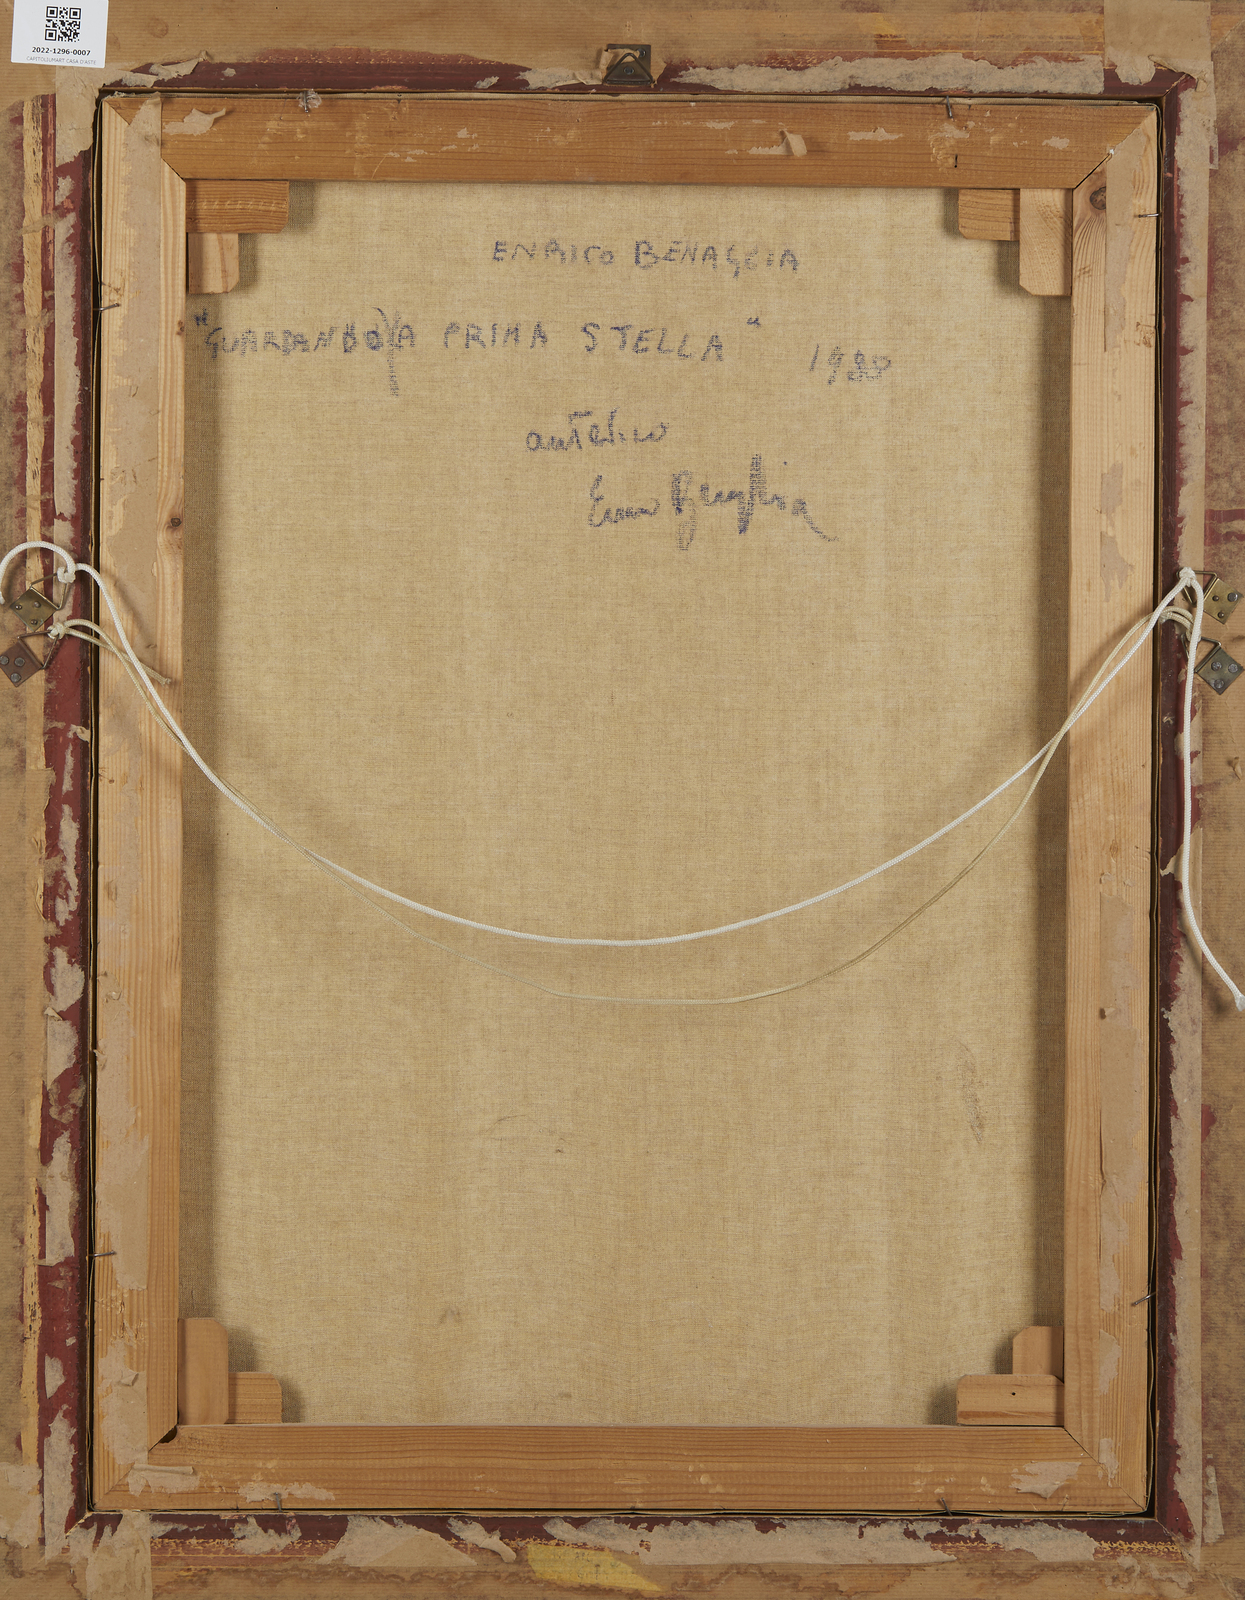 2022-1296-0007
CAPITOLIUMART CASA D'ASTE
ENRICO BENAGLIA
"GUARDANDO LA PRIMA STELLA" 1980
autentico
Enrico Benaglia